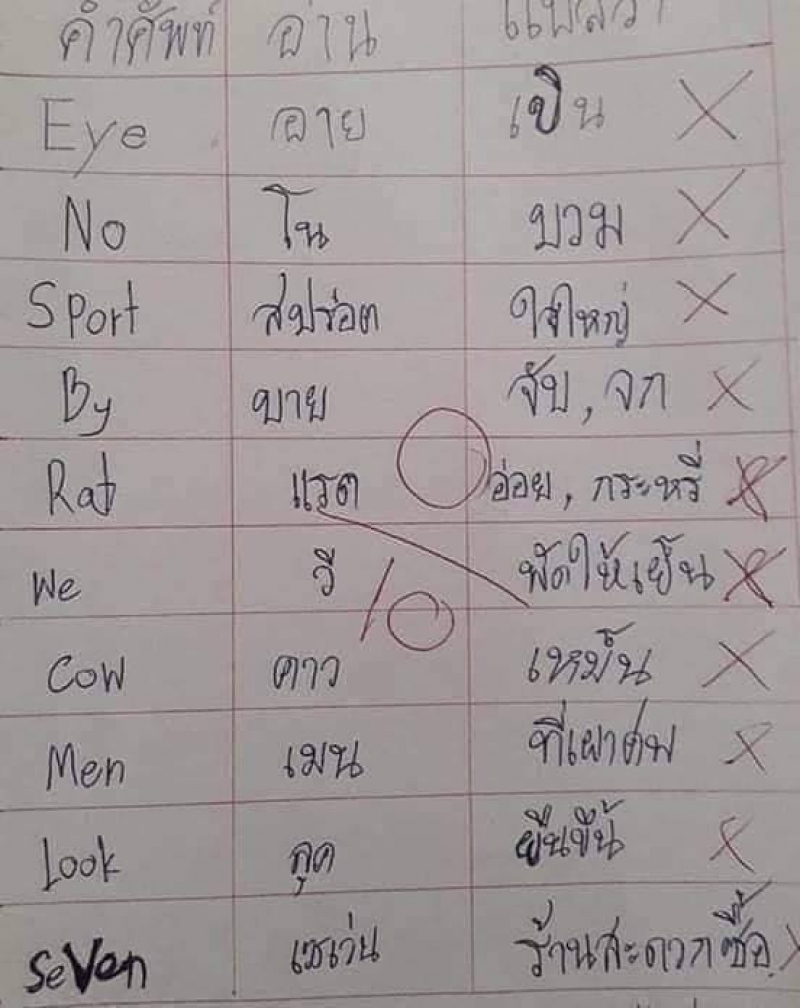 คำศัพท์ อ่าน แปลว่า
Eye อาย เขิน
No โน บวม
Sport สปร่อต ใจใหญ่
By บาย จับ, จก
Rat แรด อ่อย, กระหรี่
We วี พัดให้เย็น
0/10
Cow คาว เหม็น
Men เมน ที่เผาศพ
Look ลุค ยืนขึ้น
Seven เซเว่น ร้านสะดวกซื้อ